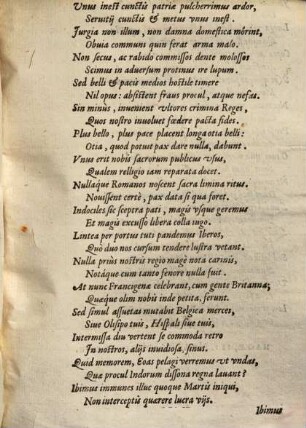 Vnus inest cunctis patriæ pulcherrimus ardor,
Seruitij cunctis & metus vnus inest.
Iurgia non illum, non damna domestica mórint,
Obuia communi quin ferat arma malo.
Non secus, ac rabido commissos dente molossos
Scimus in aduersum protinus ire lupum.
Sed belli & pacis medios hostile timere
Nil opus: absistent fraus procul, atque nefas.
Sin minus, inuenient vltores crimina Reges,
Quos nostro inuoluet fœdere pacta fides.
Plus bello, plus pace placent longa otia belli:
Otia, quod potuit pax dare nulla, dabunt.
Vnus erit nobis sacrorum publicus vsus,
Qualem relligio iam reparata docet.
Nullaque Romanos noscent sacra limina ritus.
Nouissent certè, pax data si qua foret.
Indociles sic sceptra pati, magis vsque geremus
Et magis excusso libera colla iugo.
Lintea per portus tuti pandemus Iberos,
Quò duo nos cursum tendere lustra vetant.
Nulla priùs nostris regio magè nota carinis,
Notáque cum tanto fenore nulla fuit.
At nunc Francigenæ celebrant, cum gente Britanna;
Quæque olim nobis inde petita, ferunt.
Sed simul assuetas mutabit Belgica merces,
Siue Olisipo tuis, Hispali siue tuis,
Intermissa diu vertent se commoda retro
In nostros, alijs inuidiosa, sinus.
Quid memorem, Eoas pelagi verremus vt vndas,
Quæ procul Indorum dissona regna lauant?
Ibimus immunes illuc quoque Martis iniqui,
Non interceptis quærere lucra vijs.
Ibimus